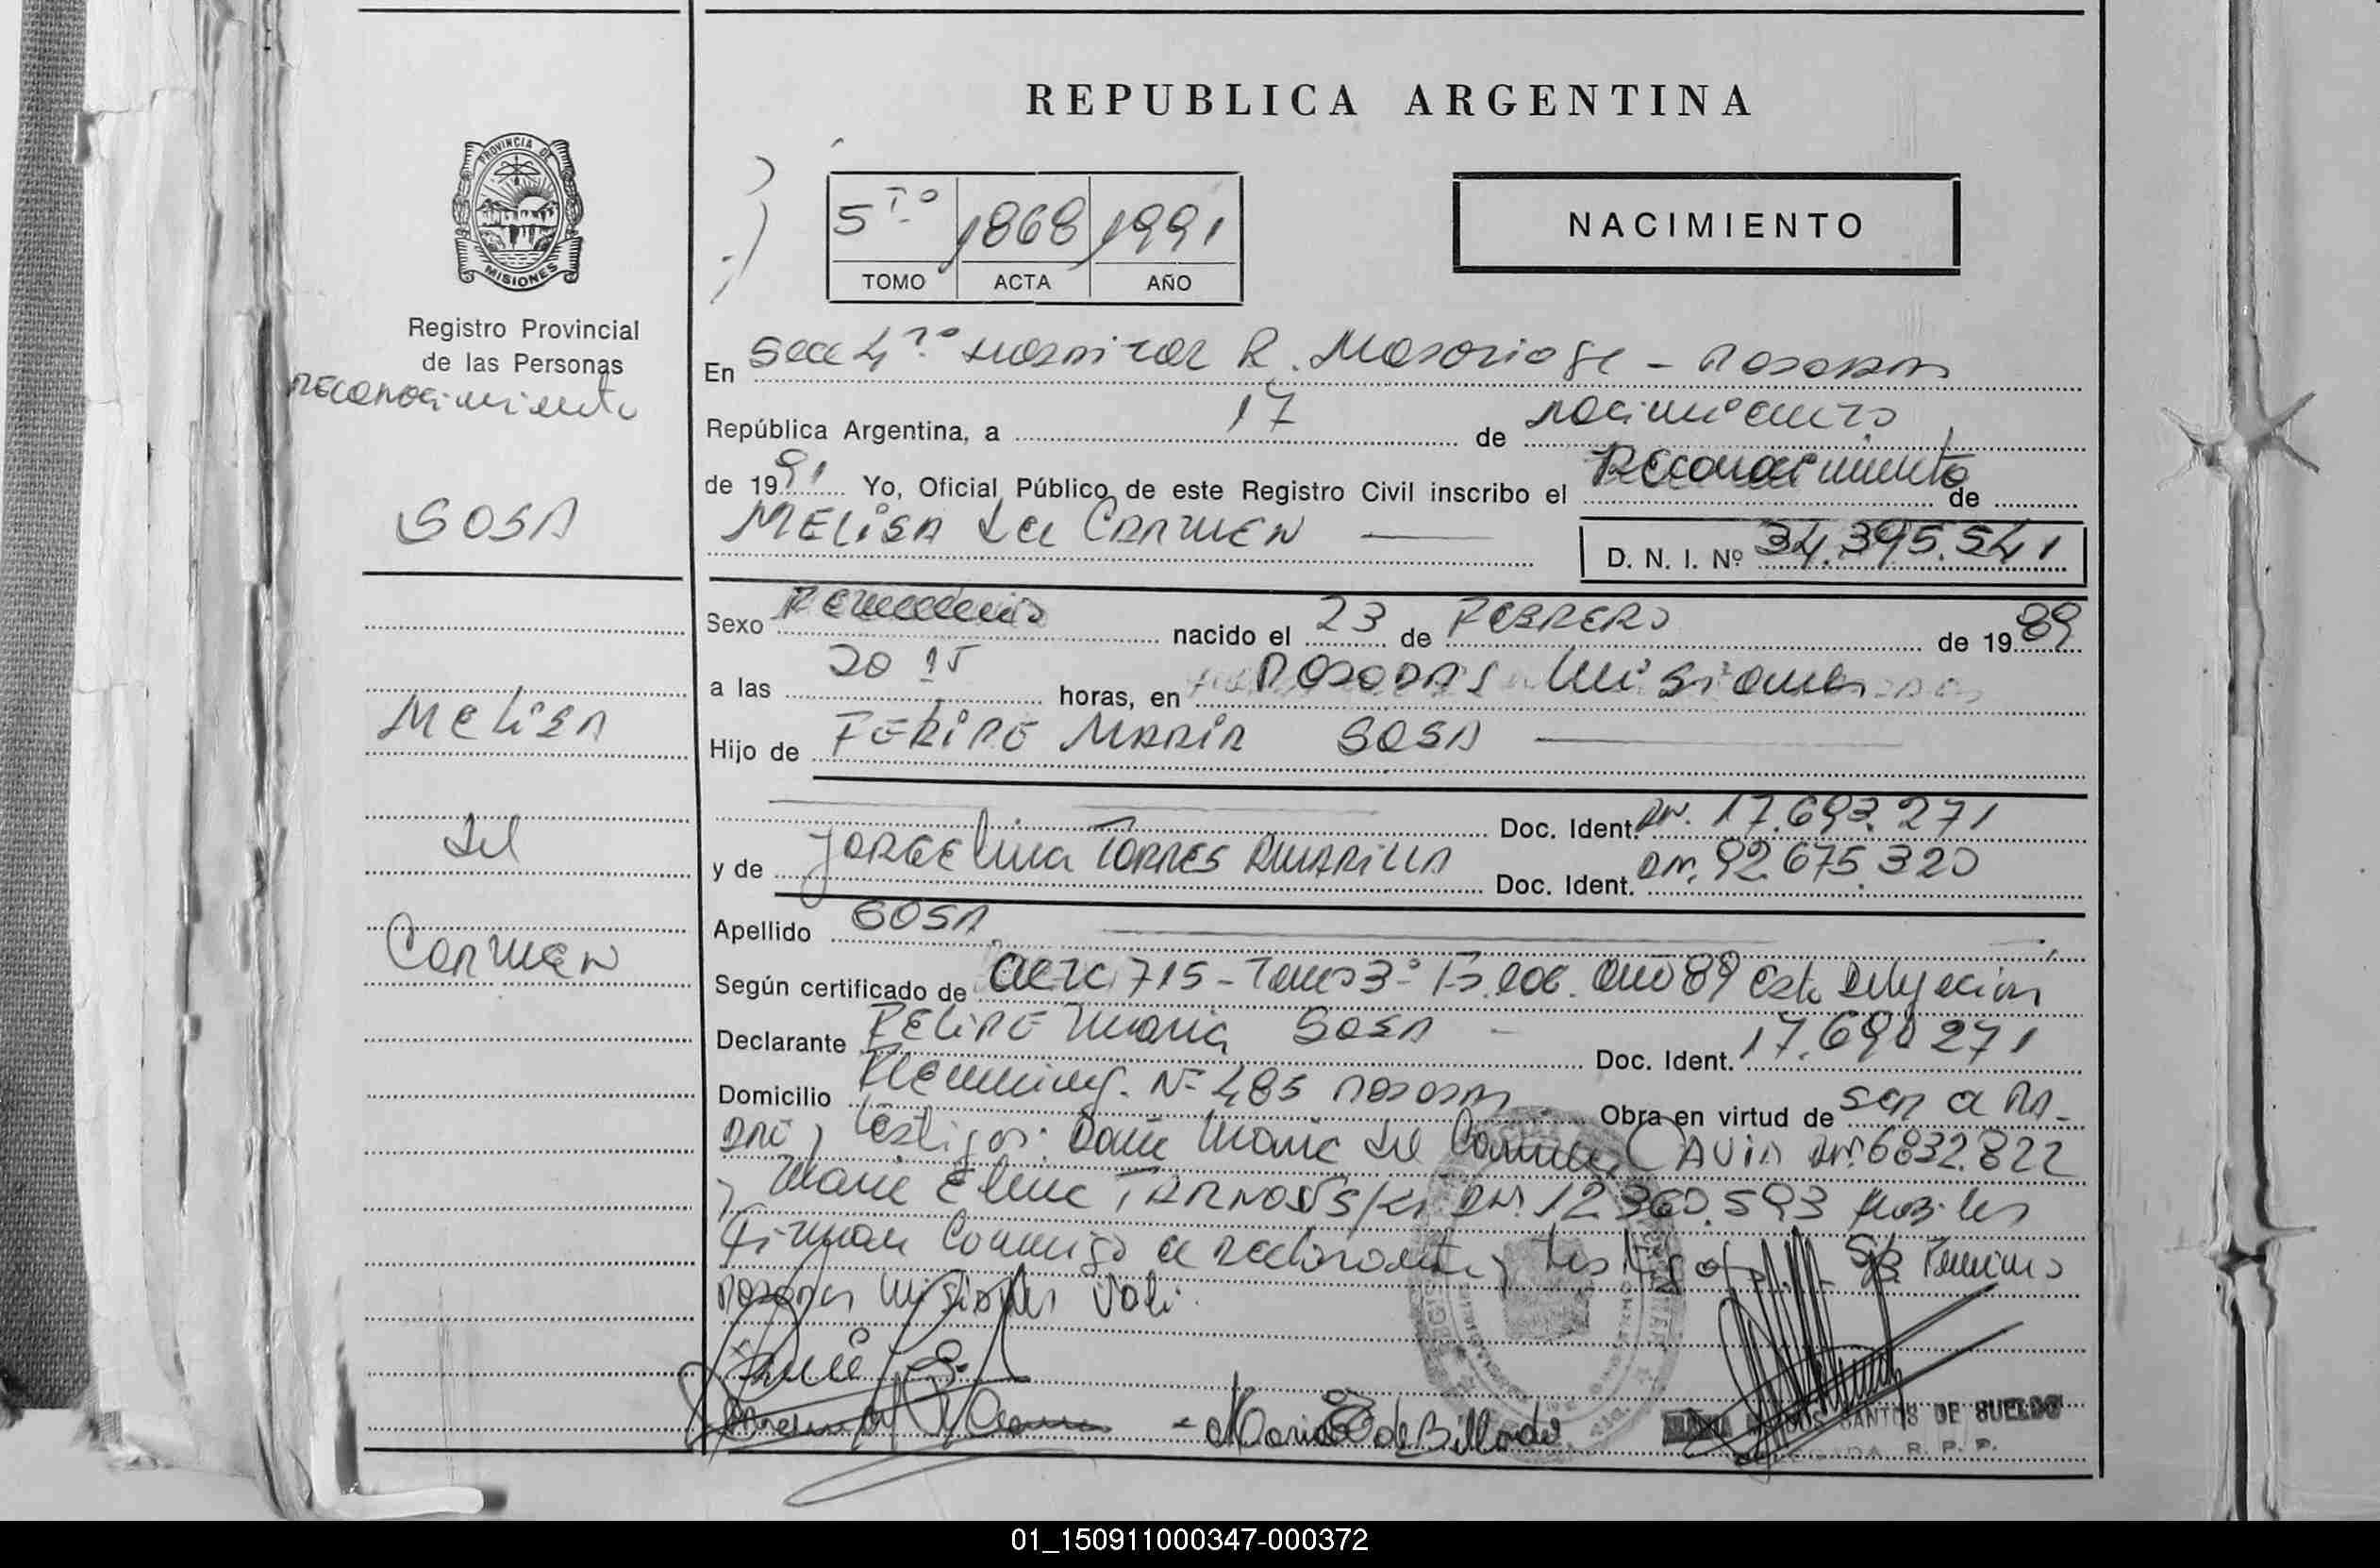 REPUBLICA ARGENTINA
PROVINCIA DE
MISIONES
5to 1868 1991
TOMO ACTA AÑO
NACIMIENTO
Registro Provincial
de las Personas
reconocimiento
SOSA
Melisa
del
Carmen
En Secc 4ta Hospital R. Madariaga - Posadas
República Argentina, a 17 de nacimiento
de 1991 Yo, Oficial Público de este Registro Civil inscribo el Reconocimiento de
MELISA del CARMEN D. N. I. Nº 34.395.541
Sexo Femenino nacido el 23 de FEBRERO de 1989
a las 20 15 horas, en POSADAS Misiones
Hijo de FELIPE MARIA SOSA
Doc. Ident. DN. 17.693.271
y de JORGElina TORRES AMARILLA Doc. Ident. DN. 92.675.320
Apellido SOSA
Según certificado de Acta 715 - Tomo 3º año 89 esta Delegacion
Declarante FELIPE Maria SOSA Doc. Ident. 17.690 271
Domicilio Flemming. Nº 485 Posadas Obra en virtud de ser a PA-
DRE y testigos: Doña Maria del Carmen CAVIA DN. 6832.822
y Maria Elena TARNOSSKI DN. 12.360.593 habiles
Firman conmigo el declarante y testigos
Posadas Misiones Vale.
Maria de Billordo
SANTOS DE SUELDO
R. P. P.
01_150911000347-000372